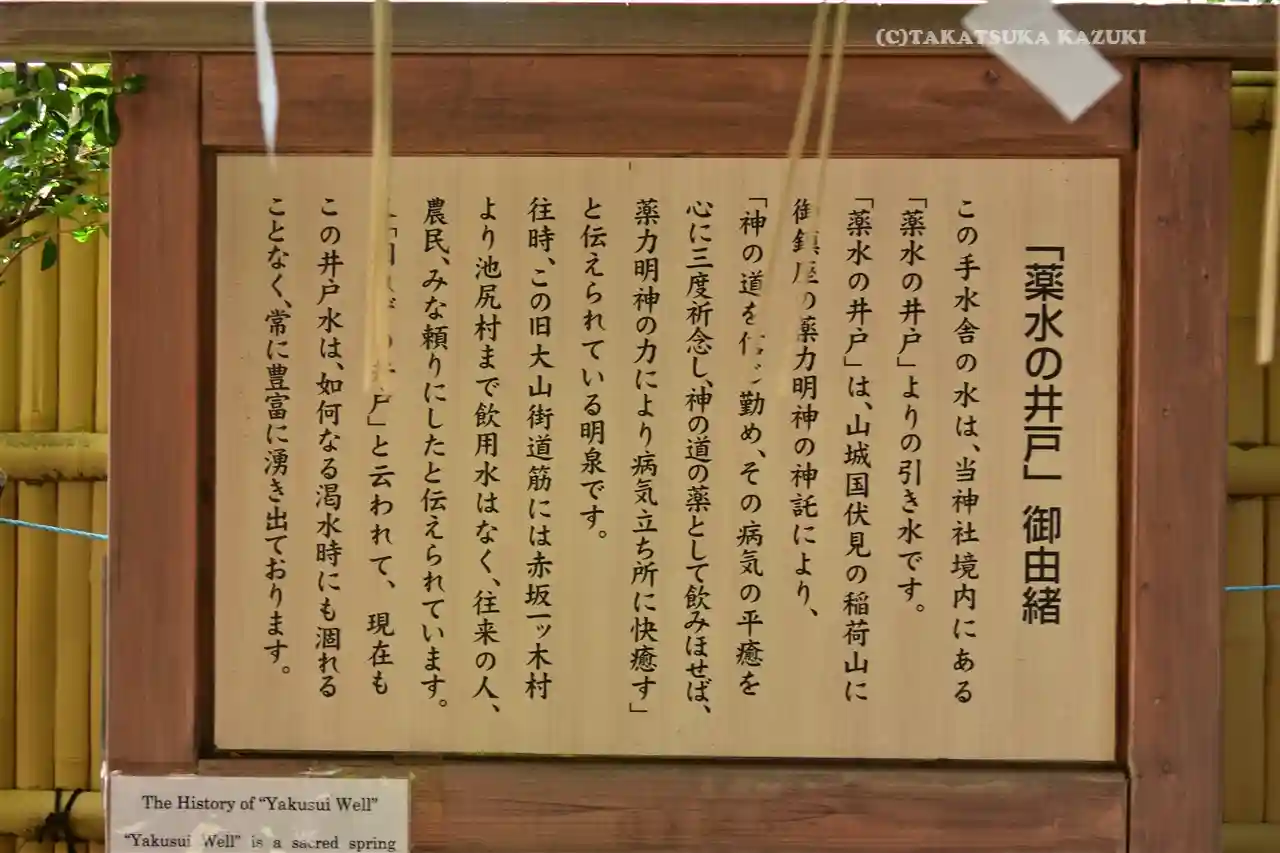 (C)TAKATSUKA KAZUKI
「薬水の井戸」 御由緒
この手水舎の水は、当神社境内にある
「薬水の井戸」よりの引き水です。
「薬水の井戸」は、山城国伏見の稲荷山に
御鎮座の薬力明神の神託により、
「神の道を信じ勤め、その病気の平癒を
心に三度祈念し、神の道の薬として飲みほせば、
薬力明神の力により病気立ち所に快癒す」
と伝えられている明泉です。
往時、この旧大山街道筋には赤坂一ッ木村
より池尻村まで飲用水はなく、往来の人、
農民、みな頼りにしたと伝えられています。
戸」と云われて、現在も
この井戸水は、如何なる渇水時にも涸れる
ことなく、常に豊富に湧き出ております。
The History of “Yakusui Well”
“Yakusui Well” is a sacred spring